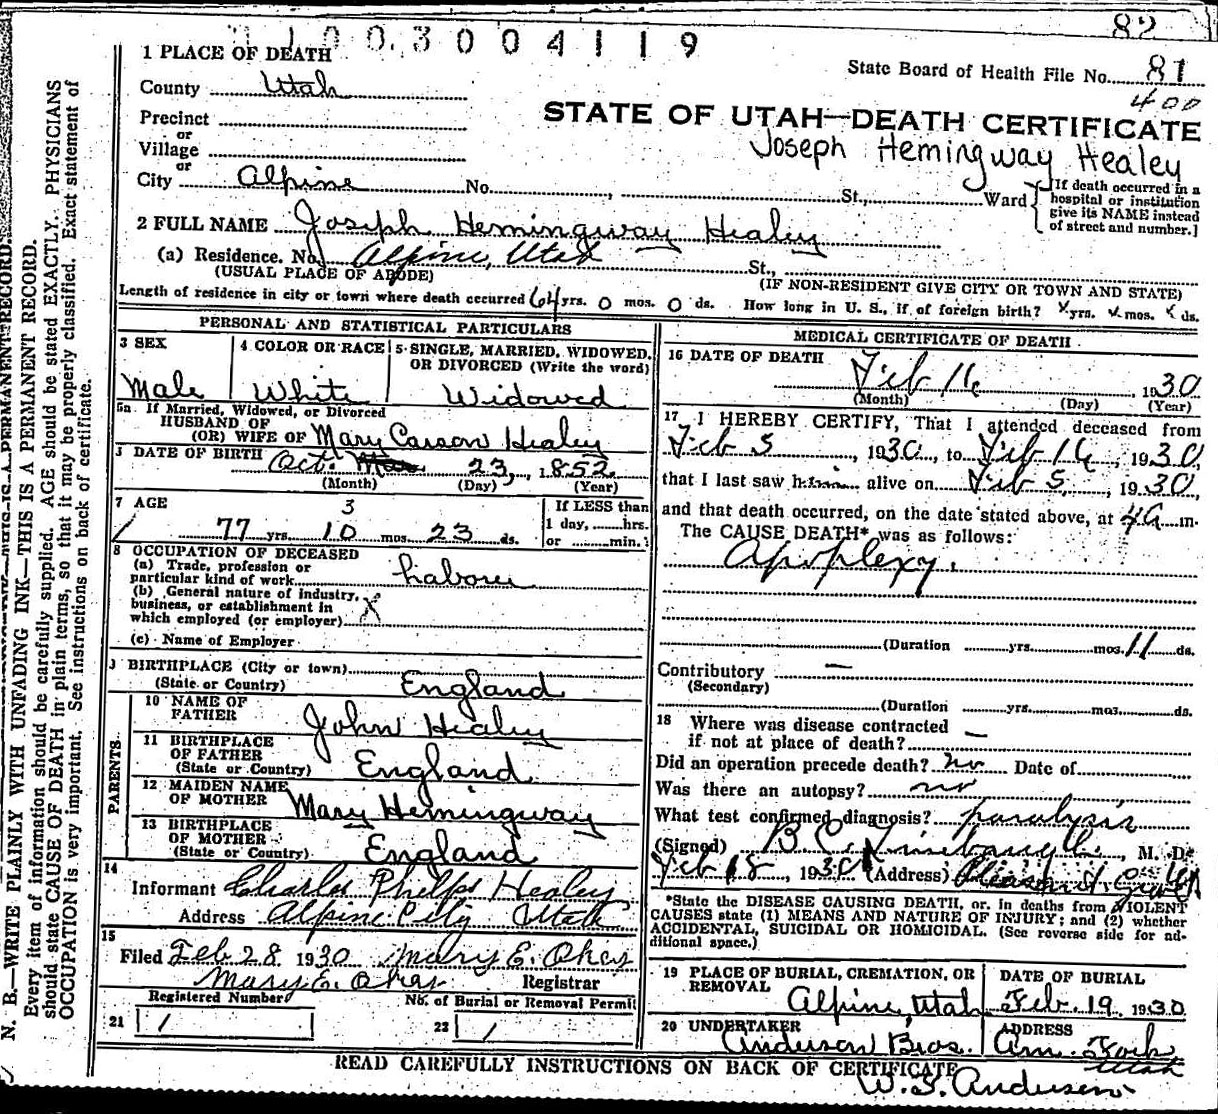 82
1003004119
State Board of Health File No. 81
400
STATE OF UTAH—DEATH CERTIFICATE
Joseph Hemingway Healey
1 PLACE OF DEATH
County Utah
Precinct
or
Village
or
City Alpine No. , St., Ward
[If death occurred in a
hospital or institution
give its NAME instead
of street and number.]
2 FULL NAME Joseph Hemingway Healey
(a) Residence. No. Alpine, Utah St.,
(USUAL PLACE OF ABODE) (IF NON-RESIDENT GIVE CITY OR TOWN AND STATE)
Length of residence in city or town where death occurred 64 yrs. 0 mos. 0 ds. How long in U. S., if of foreign birth? x yrs. x mos. x ds.
PERSONAL AND STATISTICAL PARTICULARS
3 SEX
Male
4 COLOR OR RACE
White
5 SINGLE, MARRIED, WIDOWED,
OR DIVORCED (Write the word)
Widowed
5a If Married, Widowed, or Divorced
HUSBAND OF
(OR) WIFE OF Mary Carson Healey
DATE OF BIRTH Oct. 23, 1852
(Month) (Day) (Year)
7 AGE
3
77 yrs. 10 mos. 23 ds.
If LESS than
1 day, hrs.
or min.
8 OCCUPATION OF DECEASED
(a) Trade, profession or
particular kind of work Laborer
(b) General nature of industry,
business, or establishment in
which employed (or employer) X
(c) Name of Employer
9 BIRTHPLACE (City or town)
(State or Country) England
PARENTS
10 NAME OF
FATHER John Healey
11 BIRTHPLACE
OF FATHER
(State or Country) England
12 MAIDEN NAME
OF MOTHER Mary Hemingway
13 BIRTHPLACE
OF MOTHER
(State or Country) England
14
Informant Charles Phelps Healey
Address Alpine City Utah
15
Filed Feb 28 1930 Mary E. Okey
Mary E. Okey Registrar
Registered Number
21 1
No. of Burial or Removal Permit
22 1
MEDICAL CERTIFICATE OF DEATH
16 DATE OF DEATH
Feb 16, 1930
(Month) (Day) (Year)
17 I HEREBY CERTIFY, That I attended deceased from
Feb 5, 1930, to Feb 16, 1930,
that I last saw him alive on Feb 5, 1930,
and that death occurred, on the date stated above, at 4 a m.
The CAUSE DEATH* was as follows:
Apoplexy.
(Duration yrs. mos. 11 ds.
Contributory —
(Secondary)
(Duration yrs. mos. ds.
18 Where was disease contracted
if not at place of death? —
Did an operation precede death? no Date of
Was there an autopsy? no
What test confirmed diagnosis? paralysis
(Signed) B C , M. D.
Feb 18, 1930 (Address) Pleasant Grove
*State the DISEASE CAUSING DEATH, or in deaths from VIOLENT
CAUSES state (1) MEANS AND NATURE OF INJURY; and (2) whether
ACCIDENTAL, SUICIDAL OR HOMICIDAL. (See reverse side for ad-
ditional space.)
19 PLACE OF BURIAL, CREMATION, OR
REMOVAL
Alpine, Utah
DATE OF BURIAL
Feb. 19 1930
20 UNDERTAKER
Anderson Bros.
ADDRESS
Am. Fork
Utah
READ CAREFULLY INSTRUCTIONS ON BACK OF CERTIFICATE
W. S. Anderson
N. B.—WRITE PLAINLY WITH UNFADING INK—THIS IS A PERMANENT RECORD.
Every item of information should be carefully supplied. AGE should be stated EXACTLY. PHYSICIANS
should state CAUSE OF DEATH in plain terms, so that it may be properly classified. Exact statement of
OCCUPATION is very important. See instructions on back of certificate.